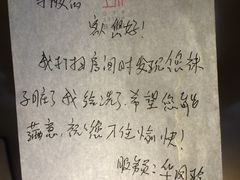 您好!
我打扫房间时发现您袜
子脏了我给洗了,希望您能
满意,祝您入住愉快!
服务员:华